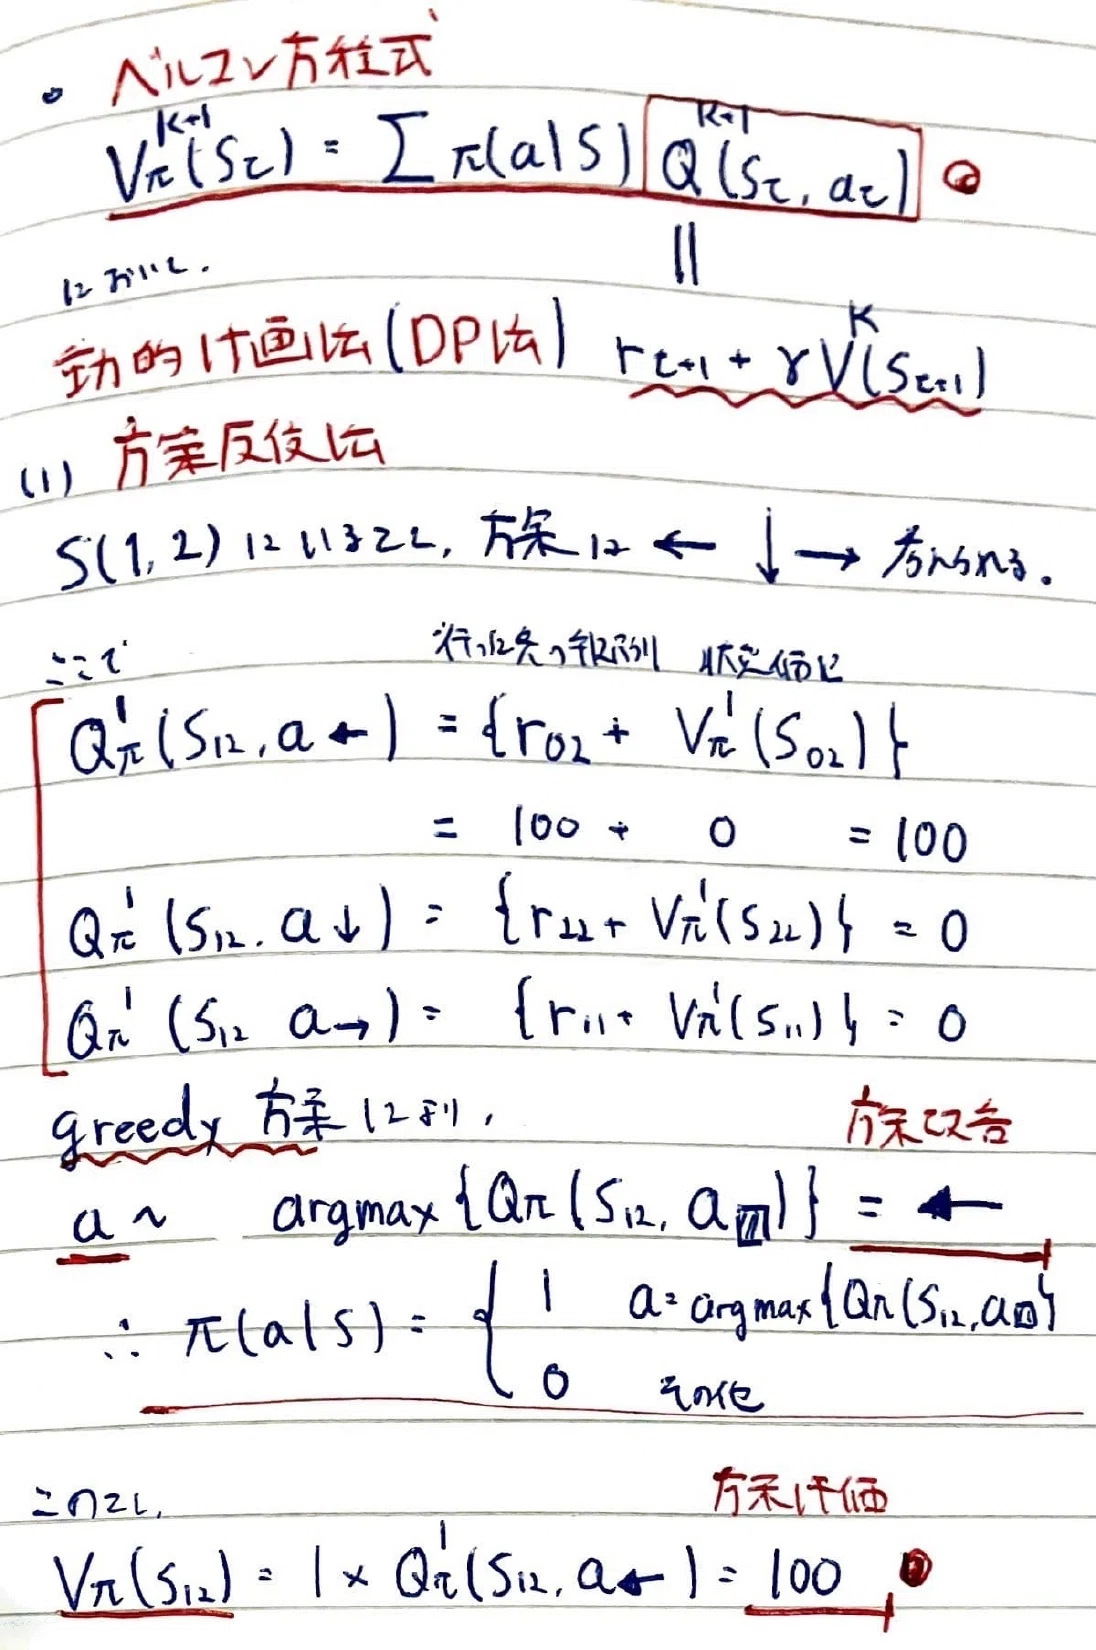 • ベルマン方程式
Vπ^{k+1}(St) = Σ π(a|S) Q^{k+1}(St, at)
において. ||
動的計画法(DP法) r_{t+1} + γV^k(S_{t+1})
(1) 方策反復法
S(1,2)にいるとし, 方策は ← ↓ → 考えられる.
ここで 行った先の報酬 状態価値
Qπ^1(S12, a←) = {r02 + Vπ^1(S02)}
= 100 + 0 = 100
Qπ^1(S12. a↓) = {r22 + Vπ^1(S22)} = 0
Qπ^1(S12 a→) = {r11 + Vπ^1(S11)} = 0
greedy 方策により, 方策改善
a ~ argmax{Qπ(S12, a)} = ←
∴ π(a|S) = { 1 a = argmax{Qπ(S12, a)}
0 その他
このとし, 方策評価
Vπ(S12) = 1 × Qπ^1(S12, a←) = 100